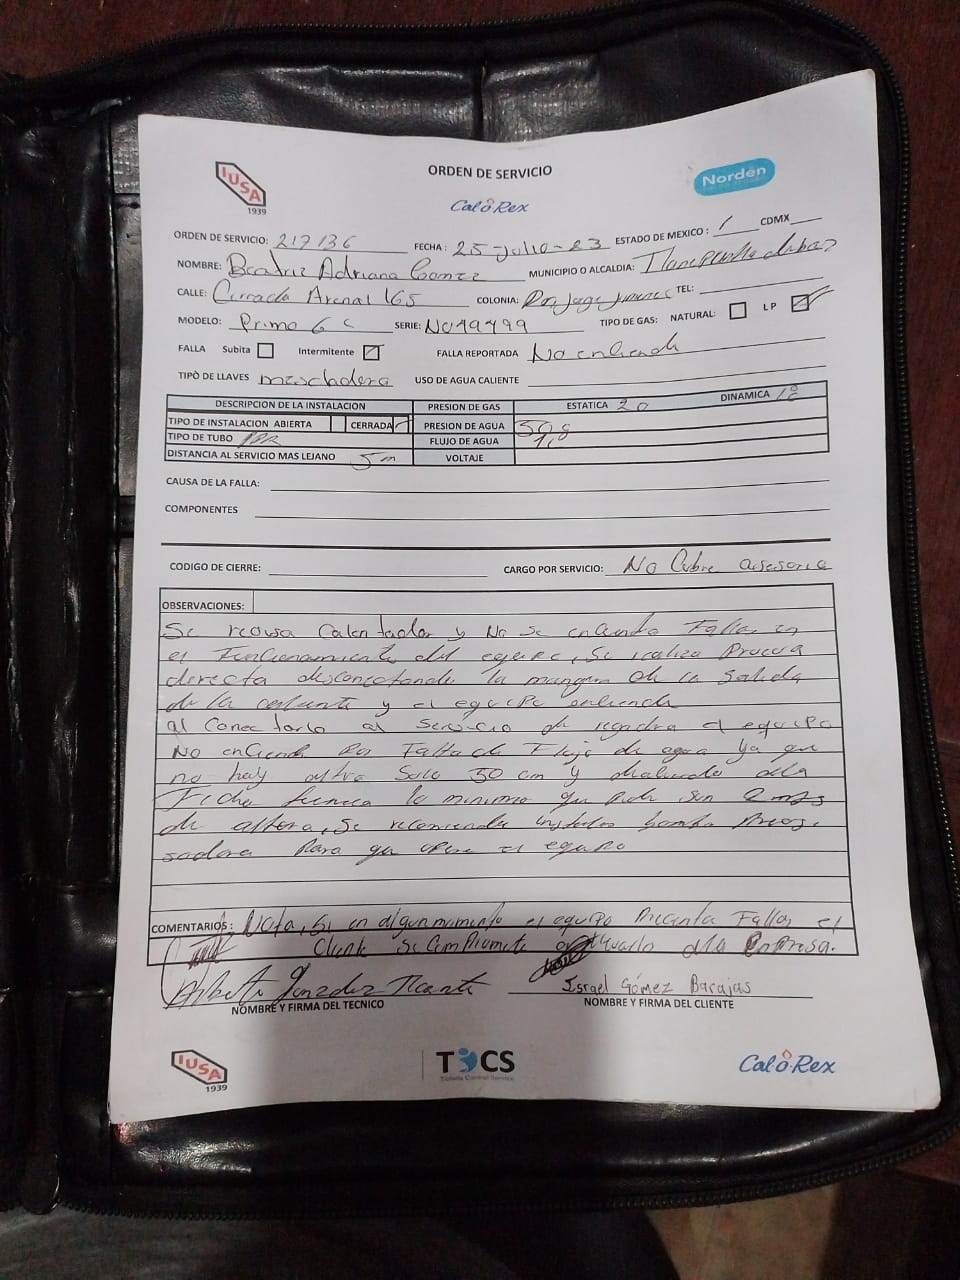 IUSA
1939
ORDEN DE SERVICIO
Cal-o-Rex
Norden
ORDEN DE SERVICIO: 217136 FECHA: 25-Julio-23 ESTADO DE MEXICO: / CDMX
NOMBRE: Beatriz Adriana Gomez MUNICIPIO O ALCALDIA:
CALLE: Cerrada Arenal 165 COLONIA: Don Jorge Jimenez TEL:
MODELO: Primo 6 SERIE: NO49499 TIPO DE GAS: NATURAL: LP
FALLA Subita Intermitente FALLA REPORTADA No enciende
TIPO DE LLAVES mescladora USO DE AGUA CALIENTE
DESCRIPCION DE LA INSTALACION PRESION DE GAS ESTATICA 20 DINAMICA
TIPO DE INSTALACION ABIERTA CERRADA PRESION DE AGUA
TIPO DE TUBO FLUJO DE AGUA
DISTANCIA AL SERVICIO MAS LEJANO 5m VOLTAJE
CAUSA DE LA FALLA:
COMPONENTES
CODIGO DE CIERRE: CARGO POR SERVICIO: No Cubre asesoria
OBSERVACIONES:
Se revisa Calentador y No se encuentra Falla en
el Funcionamiento del equipo, Se realiza Prueva
directa desconectando la manguera de la Salida
de la caliente y el equipo enciende
al Conectarlo al Servicio de regadera el equipo
No enciende Por Falta de Flujo de agua Ya que
no hay altura Solo 50 cm y de la
Ficha tecnica lo minimo que Pide son 2 mts
de altura, Se recomienda bomba Presu-
sadora Para que opere el equipo
COMENTARIOS: Nota, Si en algun momento el equipo Presenta Fallas el
Cliente Se Compromete de la Empresa.
Alberto Gonzalez
NOMBRE Y FIRMA DEL TECNICO
Israel Gómez Barajas
NOMBRE Y FIRMA DEL CLIENTE
IUSA
1939
TCS
Cal-o-Rex